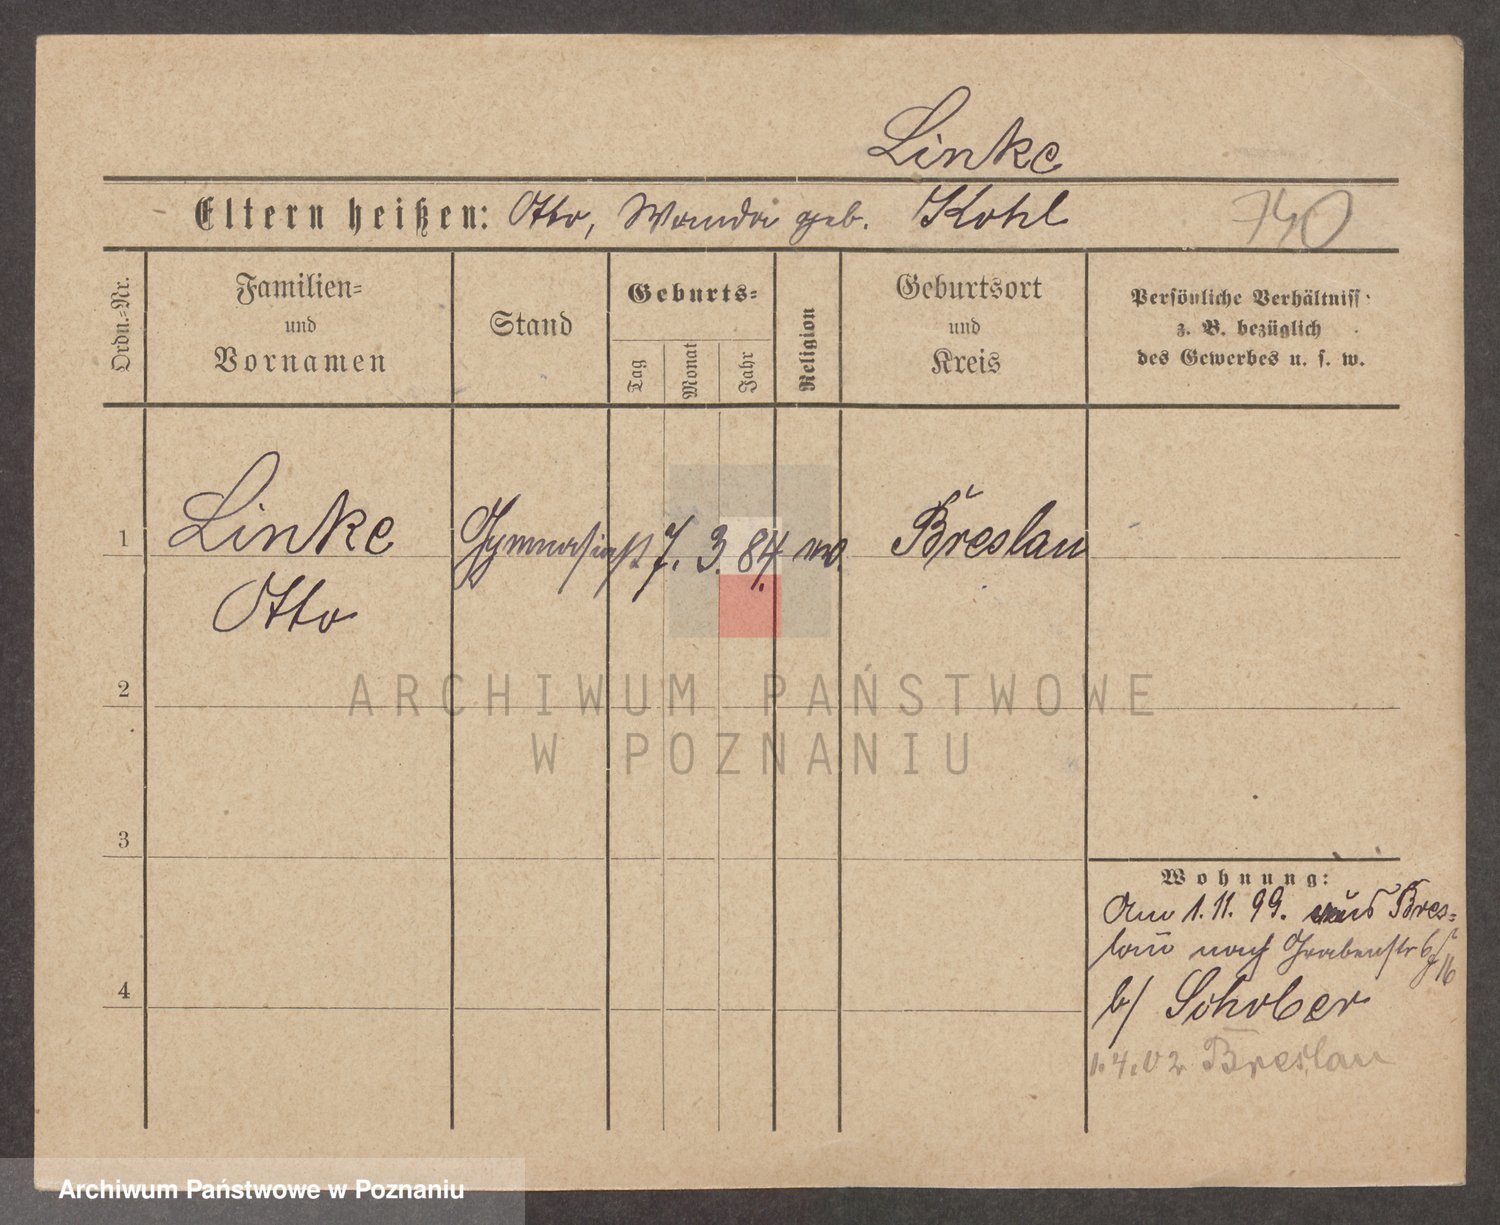 Linke
Eltern heißen: Otto, Wanda geb. Kohl
740
Ordn.-Nr.
Familien-
und
Vornamen
Stand
Geburts-
Tag
Monat
Jahr
Religion
Geburtsort
und
Kreis
Persönliche Verhältniss
z. B. bezüglich
des Gewerbes u. s. w.
1
Linke
Otto
Gymnasiast
7.
3.
84.
ev.
Breslau
2
ARCHIWUM PAŃSTWOWE
W POZNANIU
3
Wohnung:
Am 1. 11. 99. aus Bres-
lau nach Grabenstr
b/ Schober
1.4.02 Breslau
4
Archiwum Państwowe w Poznaniu